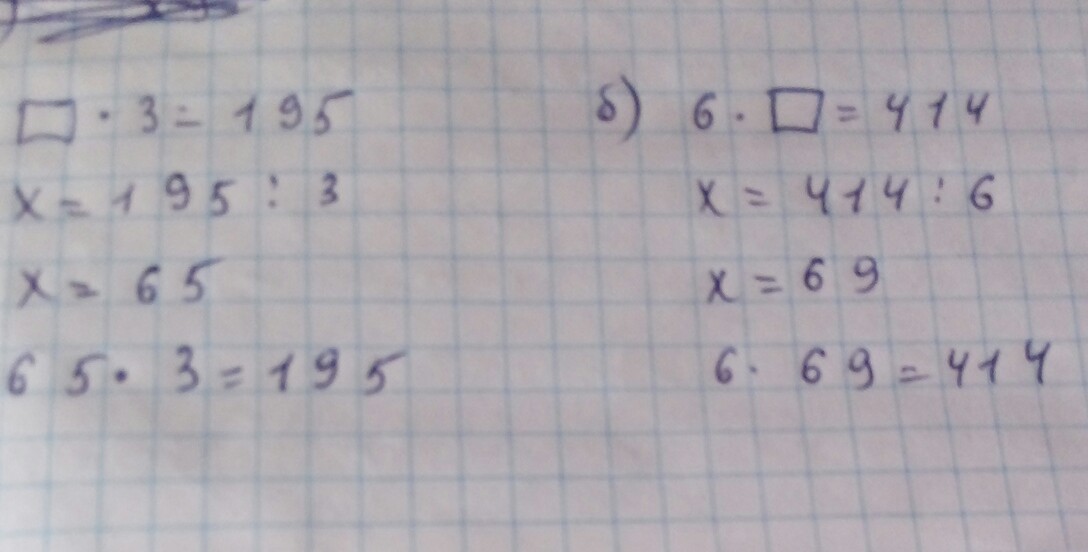 □ · 3 = 195
x = 195 : 3
x = 65
65 · 3 = 195
б) 6 · □ = 414
x = 414 : 6
x = 69
6 · 69 = 414